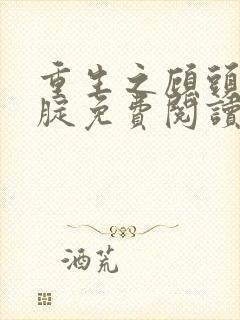 重生之顾頭
腚免費閱讀
酒荒